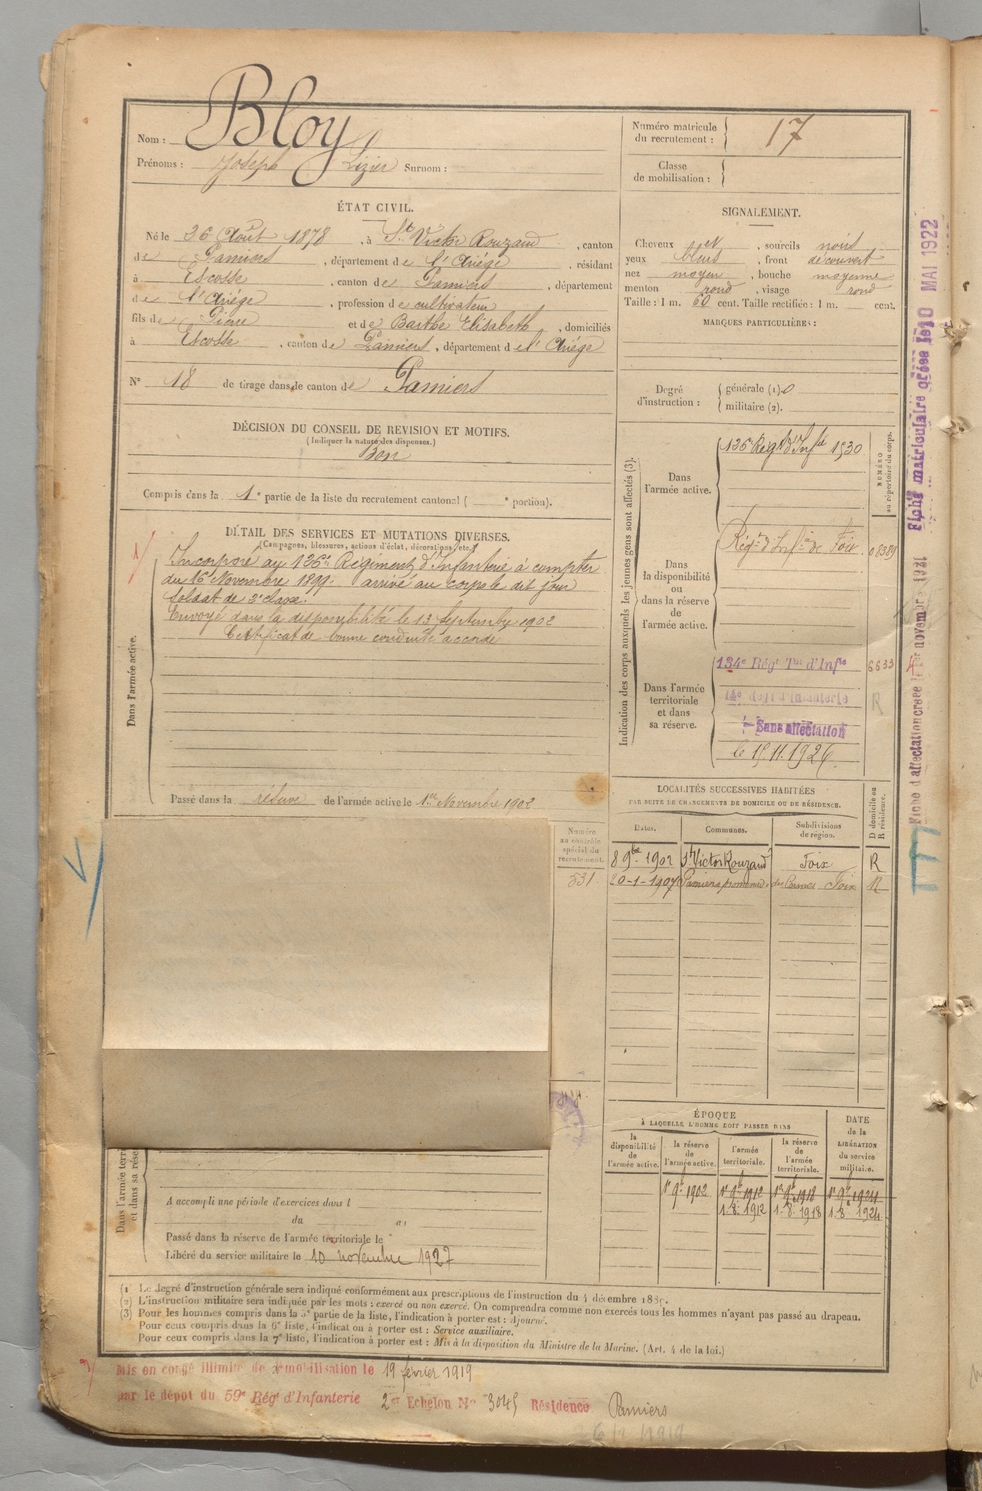 Nom : Bloy
Prénoms : Joseph Lizier Surnom :
ÉTAT CIVIL.
Né le 26 Août 1878, à St Victor Rouzaud, canton
de Pamiers, département de l'Ariège, résidant
à Escosse, canton de Pamiers, département
de l'Ariège, profession de cultivateur
fils de Pierre et de Barthe Elisabeth, domiciliés
à Escosse, canton de Pamiers, département de l'Ariège
N° 18 de tirage dans le canton de Pamiers
DÉCISION DU CONSEIL DE REVISION ET MOTIFS.
(Indiquer la nature des dispenses.)
Bon
Compris dans la 1e partie de la liste du recrutement cantonal ( e portion).
DÉTAIL DES SERVICES ET MUTATIONS DIVERSES.
(Campagnes, blessures, actions d'éclat, décorations, etc.)
Dans l'armée active.
Incorporé au 136e Régiment d'Infanterie à compter
du 16 Novembre 1899. arrivé au corps le dit jour
Soldat de 2e classe.
Envoyé dans la disponibilité le 13 Septembre 1902
Certificat de bonne conduite accordé
Passé dans la réserve de l'armée active le 1er Novembre 1902
Numéro
au contrôle
spécial du
recrutement.
831
Dans l'armée terri
et dans sa rése
A accompli une période d'exercices dans l
du au
Passé dans la réserve de l'armée territoriale le
Libéré du service militaire le 10 novembre 1927
Numéro matricule
du recrutement : 17
Classe
de mobilisation :
SIGNALEMENT.
Cheveux , sourcils noirs
yeux bleus, front découvert
nez moyen, bouche moyenne
menton rond, visage rond
Taille : 1 m. 60 cent. Taille rectifiée : 1 m. cent.
MARQUES PARTICULIÈRES :
Degré
d'instruction :
générale (1). 0
militaire (2).
Indication des corps auxquels les jeunes gens sont affectés (3).
NUMÉRO
au répertoire du corps.
Dans
l'armée active.
136e Régt d'Infie 1530
Dans
la disponibilité
ou
dans la réserve
de
l'armée active.
Régt d'Infie de Foix
Dans l'armée
territoriale
et dans
sa réserve.
134e Régt Tal d'Infie 6633
R
Sans affectation
le 15.11.1926.
LOCALITÉS SUCCESSIVES HABITÉES
PAR SUITE DE CHANGEMENTS DE DOMICILE OU DE RÉSIDENCE.
Dates. Communes. Subdivisions
de région.
D domicile ou
R résidence.
8 9bre 1902 St Victor Rouzaud Foix R
20-1-1907 Pamiers Foix R
ÉPOQUE
À LAQUELLE L'HOMME DOIT PASSER DANS
la
disponibilité
de
l'armée active.
la réserve
de
l'armée active.
l'armée
territoriale.
la réserve
de
l'armée
territoriale.
DATE
de la
LIBÉRATION
du service
militaire.
1er 9bre 1902 1er 9bre 1912 1er 9bre 1918 1er 9bre 1924
1. 8. 1912 1. 8. 1918 1. 8. 1924
(1) Le degré d'instruction générale sera indiqué conformément aux prescriptions de l'instruction du 4 décembre 1889.
(2) L'instruction militaire sera indiquée par les mots : exercé ou non exercé. On comprendra comme non exercés tous les hommes n'ayant pas passé au drapeau.
(3) Pour les hommes compris dans la 5e partie de la liste, l'indication à porter est : Ajourné.
Pour ceux compris dans la 6e liste, l'indication à porter est : Service auxiliaire.
Pour ceux compris dans la 7e liste, l'indication à porter est : Mis à la disposition du Ministre de la Marine. (Art. 4 de la loi.)
Mis en congé illimité de démobilisation le 19 février 1919
par le dépôt du 59e Rég' d'Infanterie 2e Echelon No 3045 Résidence Pamiers
Fiche d'affectation créée le 4 novembre 1921
Fiche matricule créée le 10 MAI 1922